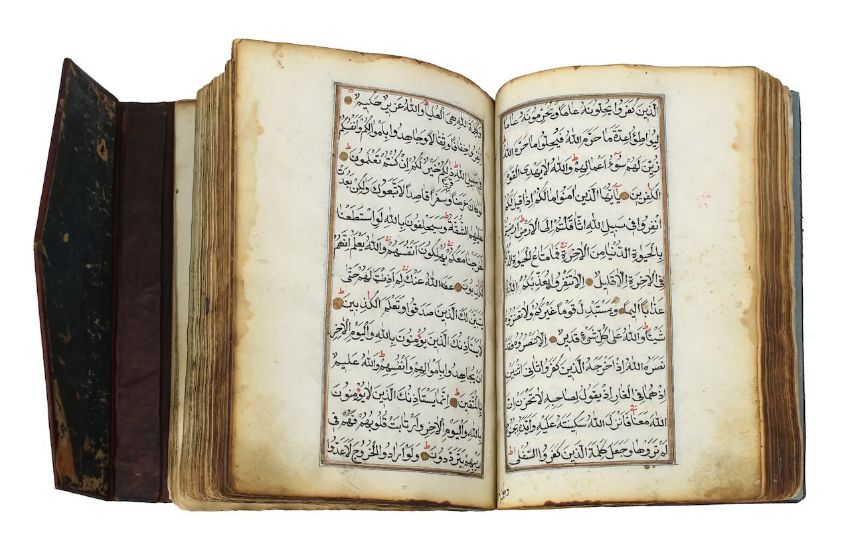 الَّذِينَ كَفَرُوا يُحِلُّونَهُ عَامًا وَيُحَرِّمُونَهُ عَامًا
لِيُوَاطِئُوا عِدَّةَ مَا حَرَّمَ اللّٰهُ فَيُحِلُّوا مَا حَرَّمَ اللّٰهُ
زُيِّنَ لَهُمْ سُوءُ اَعْمَالِهِمْ وَاللّٰهُ لَا يَهْدِى الْقَوْمَ
الْكَافِرِينَ يَا اَيُّهَا الَّذِينَ اٰمَنُوا مَا لَكُمْ اِذَا قِيلَ لَكُمُ
انْفِرُوا فِى سَبِيلِ اللّٰهِ اثَّاقَلْتُمْ اِلَى الْاَرْضِ
بِالْحَيٰوةِ الدُّنْيَا مِنَ الْاٰخِرَةِ فَمَا مَتَاعُ الْحَيٰوةِ
فِى الْاٰخِرَةِ اِلَّا قَلِيلٌ اِلَّا تَنْفِرُوا يُعَذِّبْكُمْ
عَذَابًا اَلِيمًا وَيَسْتَبْدِلْ قَوْمًا غَيْرَكُمْ وَلَا تَضُرُّوهُ
شَيْئًا وَاللّٰهُ عَلٰى كُلِّ شَىْءٍ قَدِيرٌ اِلَّا تَنْصُرُوهُ
نَصَرَهُ اللّٰهُ اِذْ اَخْرَجَهُ الَّذِينَ كَفَرُوا ثَانِىَ اثْنَيْنِ
اِذْ هُمَا فِى الْغَارِ اِذْ يَقُولُ لِصَاحِبِهِ لَا تَحْزَنْ اِنَّ
اللّٰهَ مَعَنَا فَاَنْزَلَ اللّٰهُ سَكِينَتَهُ عَلَيْهِ وَاَيَّدَهُ بِجُنُودٍ
لَمْ تَرَوْهَا وَجَعَلَ كَلِمَةَ الَّذِينَ كَفَرُوا السُّفْلٰى
وَكَلِمَةُ اللّٰهِ هِىَ الْعُلْيَا وَاللّٰهُ عَزِيزٌ حَكِيمٌ
انْفِرُوا خِفَافًا وَثِقَالًا وَجَاهِدُوا بِاَمْوَالِكُمْ وَاَنْفُسِكُمْ
فِى سَبِيلِ اللّٰهِ ذٰلِكُمْ خَيْرٌ لَكُمْ اِنْ كُنْتُمْ تَعْلَمُونَ
لَوْ كَانَ عَرَضًا قَرِيبًا وَسَفَرًا قَاصِدًا لَاتَّبَعُوكَ وَلٰكِنْ بَعُدَتْ
عَلَيْهِمُ الشُّقَّةُ وَسَيَحْلِفُونَ بِاللّٰهِ لَوِ اسْتَطَعْنَا
لَخَرَجْنَا مَعَكُمْ يُهْلِكُونَ اَنْفُسَهُمْ وَاللّٰهُ يَعْلَمُ اِنَّهُمْ
لَكَاذِبُونَ عَفَا اللّٰهُ عَنْكَ لِمَ اَذِنْتَ لَهُمْ حَتّٰى
يَتَبَيَّنَ لَكَ الَّذِينَ صَدَقُوا وَتَعْلَمَ الْكَاذِبِينَ
لَا يَسْتَاْذِنُكَ الَّذِينَ يُؤْمِنُونَ بِاللّٰهِ وَالْيَوْمِ الْاٰخِرِ
اَنْ يُجَاهِدُوا بِاَمْوَالِهِمْ وَاَنْفُسِهِمْ وَاللّٰهُ عَلِيمٌ
بِالْمُتَّقِينَ اِنَّمَا يَسْتَاْذِنُكَ الَّذِينَ لَا يُؤْمِنُونَ
بِاللّٰهِ وَالْيَوْمِ الْاٰخِرِ وَارْتَابَتْ قُلُوبُهُمْ فَهُمْ فِى
رَيْبِهِمْ يَتَرَدَّدُونَ وَلَوْ اَرَادُوا الْخُرُوجَ لَاَعَدُّوا